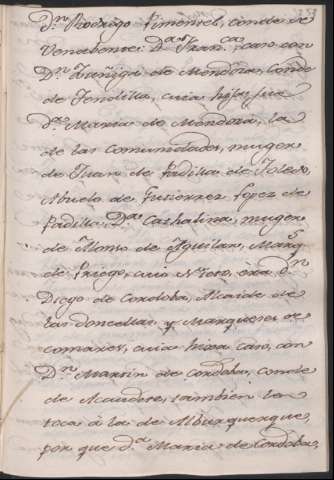 Dn. Rodrigo Pimentel, conde de
Venebente Da. Franca. caso con
Dn. Iñigo de Mendoza, Conde
de Tendilla, cuia hija fue
Da. Maria de Mendoza, la
de las Comunidades, muger
de Juan de Padilla de Toledo,
Abuelo de Gutierrez Lopez de
Padilla, Da. Cathalina, muger
de Alonso de Aguilar, Marqs.
de Priego, cuio Nieto, era Dn.
Diego de Cordoba, Alcaide de
los doncellas, y Marqueses de
comares, cuia hixa caso, con
Dn. Martin de Cordoba, conde
de Alcaudete, tambien le
toca â la de Alburquerque,
por que Da. Maria de Cordoba,